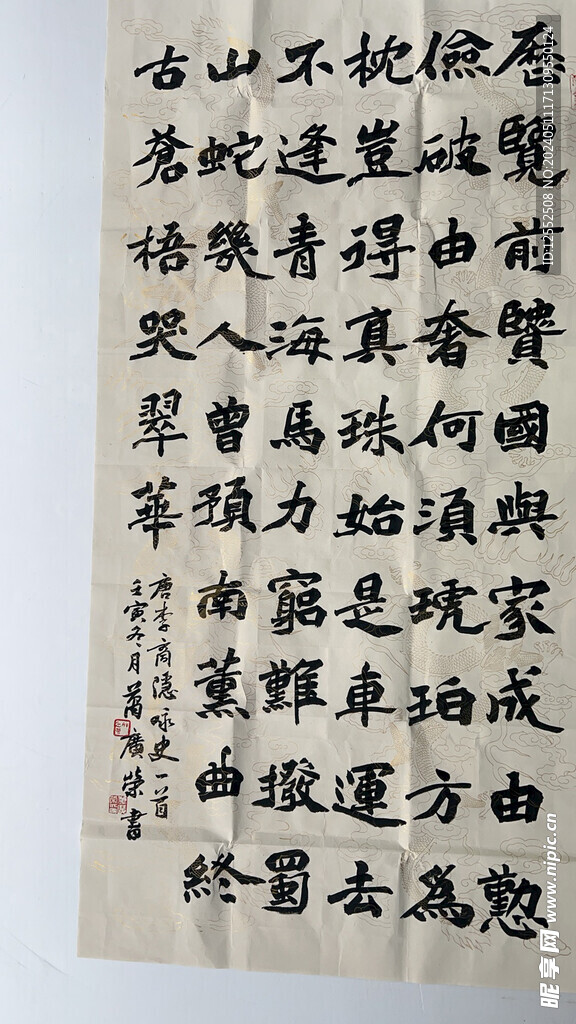 歷覽前賢國與家成由懃
儉破由奢何須琥珀方為
枕豈得真珠始是車運去
不逢青海馬力窮難撥蜀
山蛇幾人曾預南薰曲終
古蒼梧哭翠華
唐李商隱咏史一首
壬寅冬月萬廣榮書
ID:12552508 NO:20240511171309550124
昵享网 www.nipic.cn